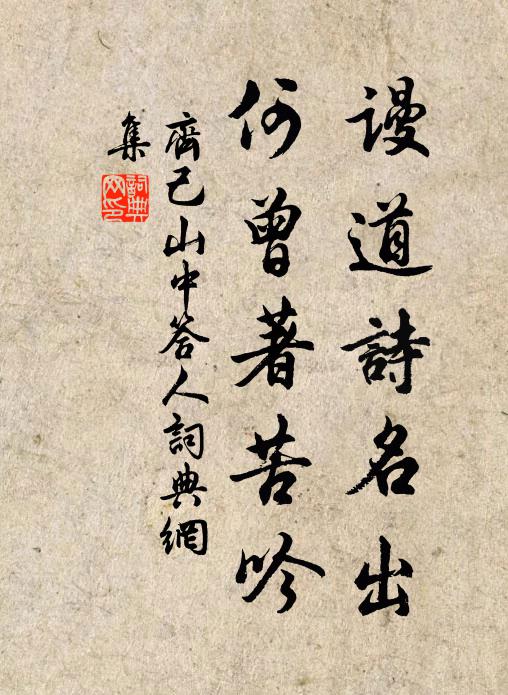 謾道詩名出
何曾著苦吟
齊己山中答人詞典網
集
詞典
网印